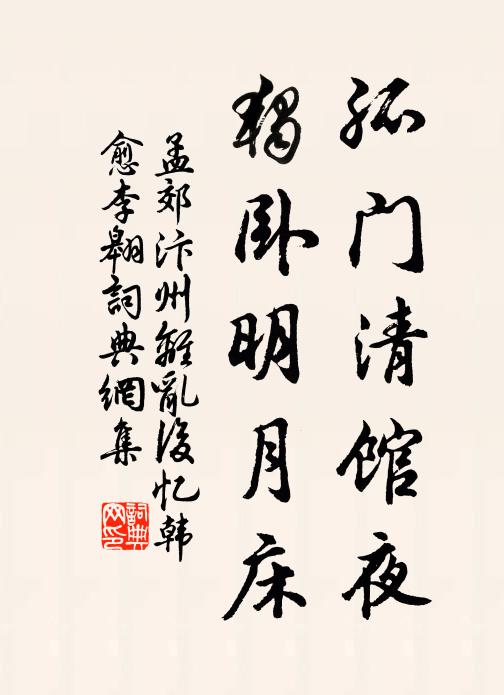 孤门清馆夜
獨卧明月床
孟郊汴州離亂後忆韩
愈李翱詞典網集
詞典
网印